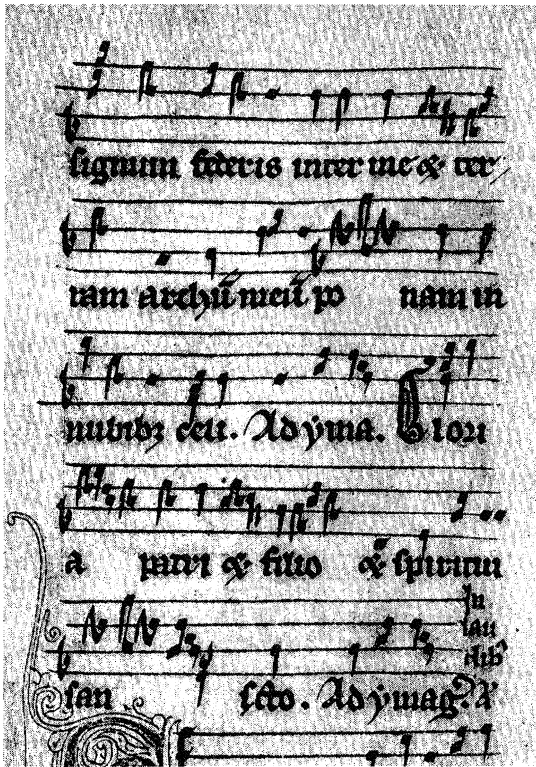 signum federis inter me & ter
ram archū meū po nam in
nubibꝫ celi. Ad yma. Glori
a patri & filio & spiritui
In
lau
dibꝰ
san scto. Ad ymag.